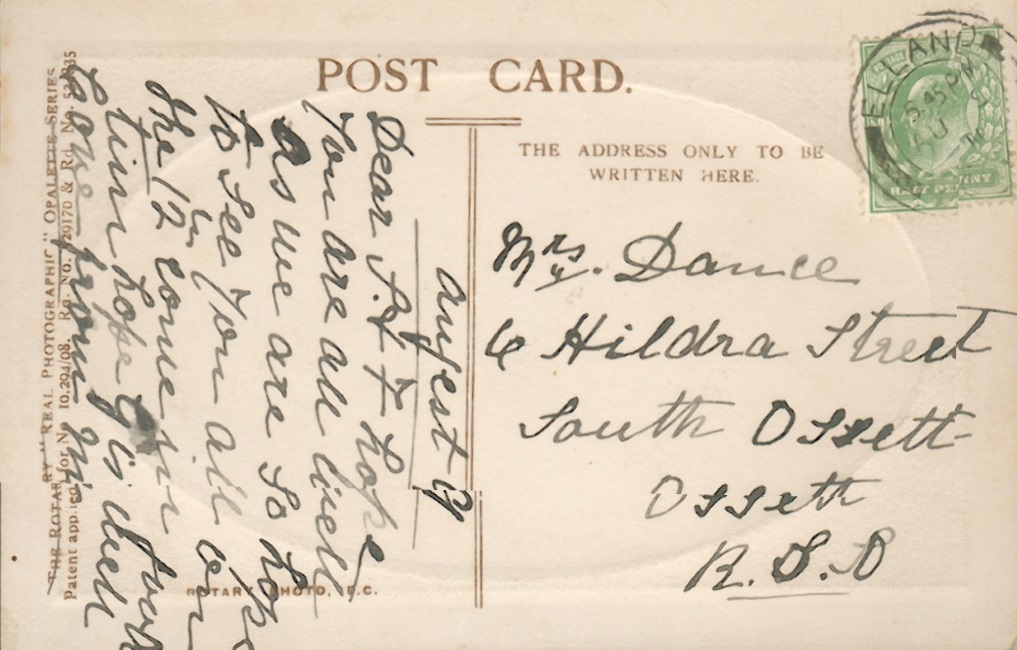 POST CARD.
THE ADDRESS ONLY TO BE
WRITTEN HERE.
ELLAND
8.45 PM
AU
HALF PENNY
Mrs. Dance
6 Hildra Street
South Ossett
Ossett
R.S.O
Augest 9
Dear S. & F hope
you are all well
as we are so hope
to see you all on
the 12 come in
tim hope G is well
love from
THE ROTARY "REAL PHOTOGRAPHIC" OPALETTE SERIES
Patent applied for No 10,294/08. Rd. No. 529170 & Rd. No.
ROTARY PHOTO, E.C.